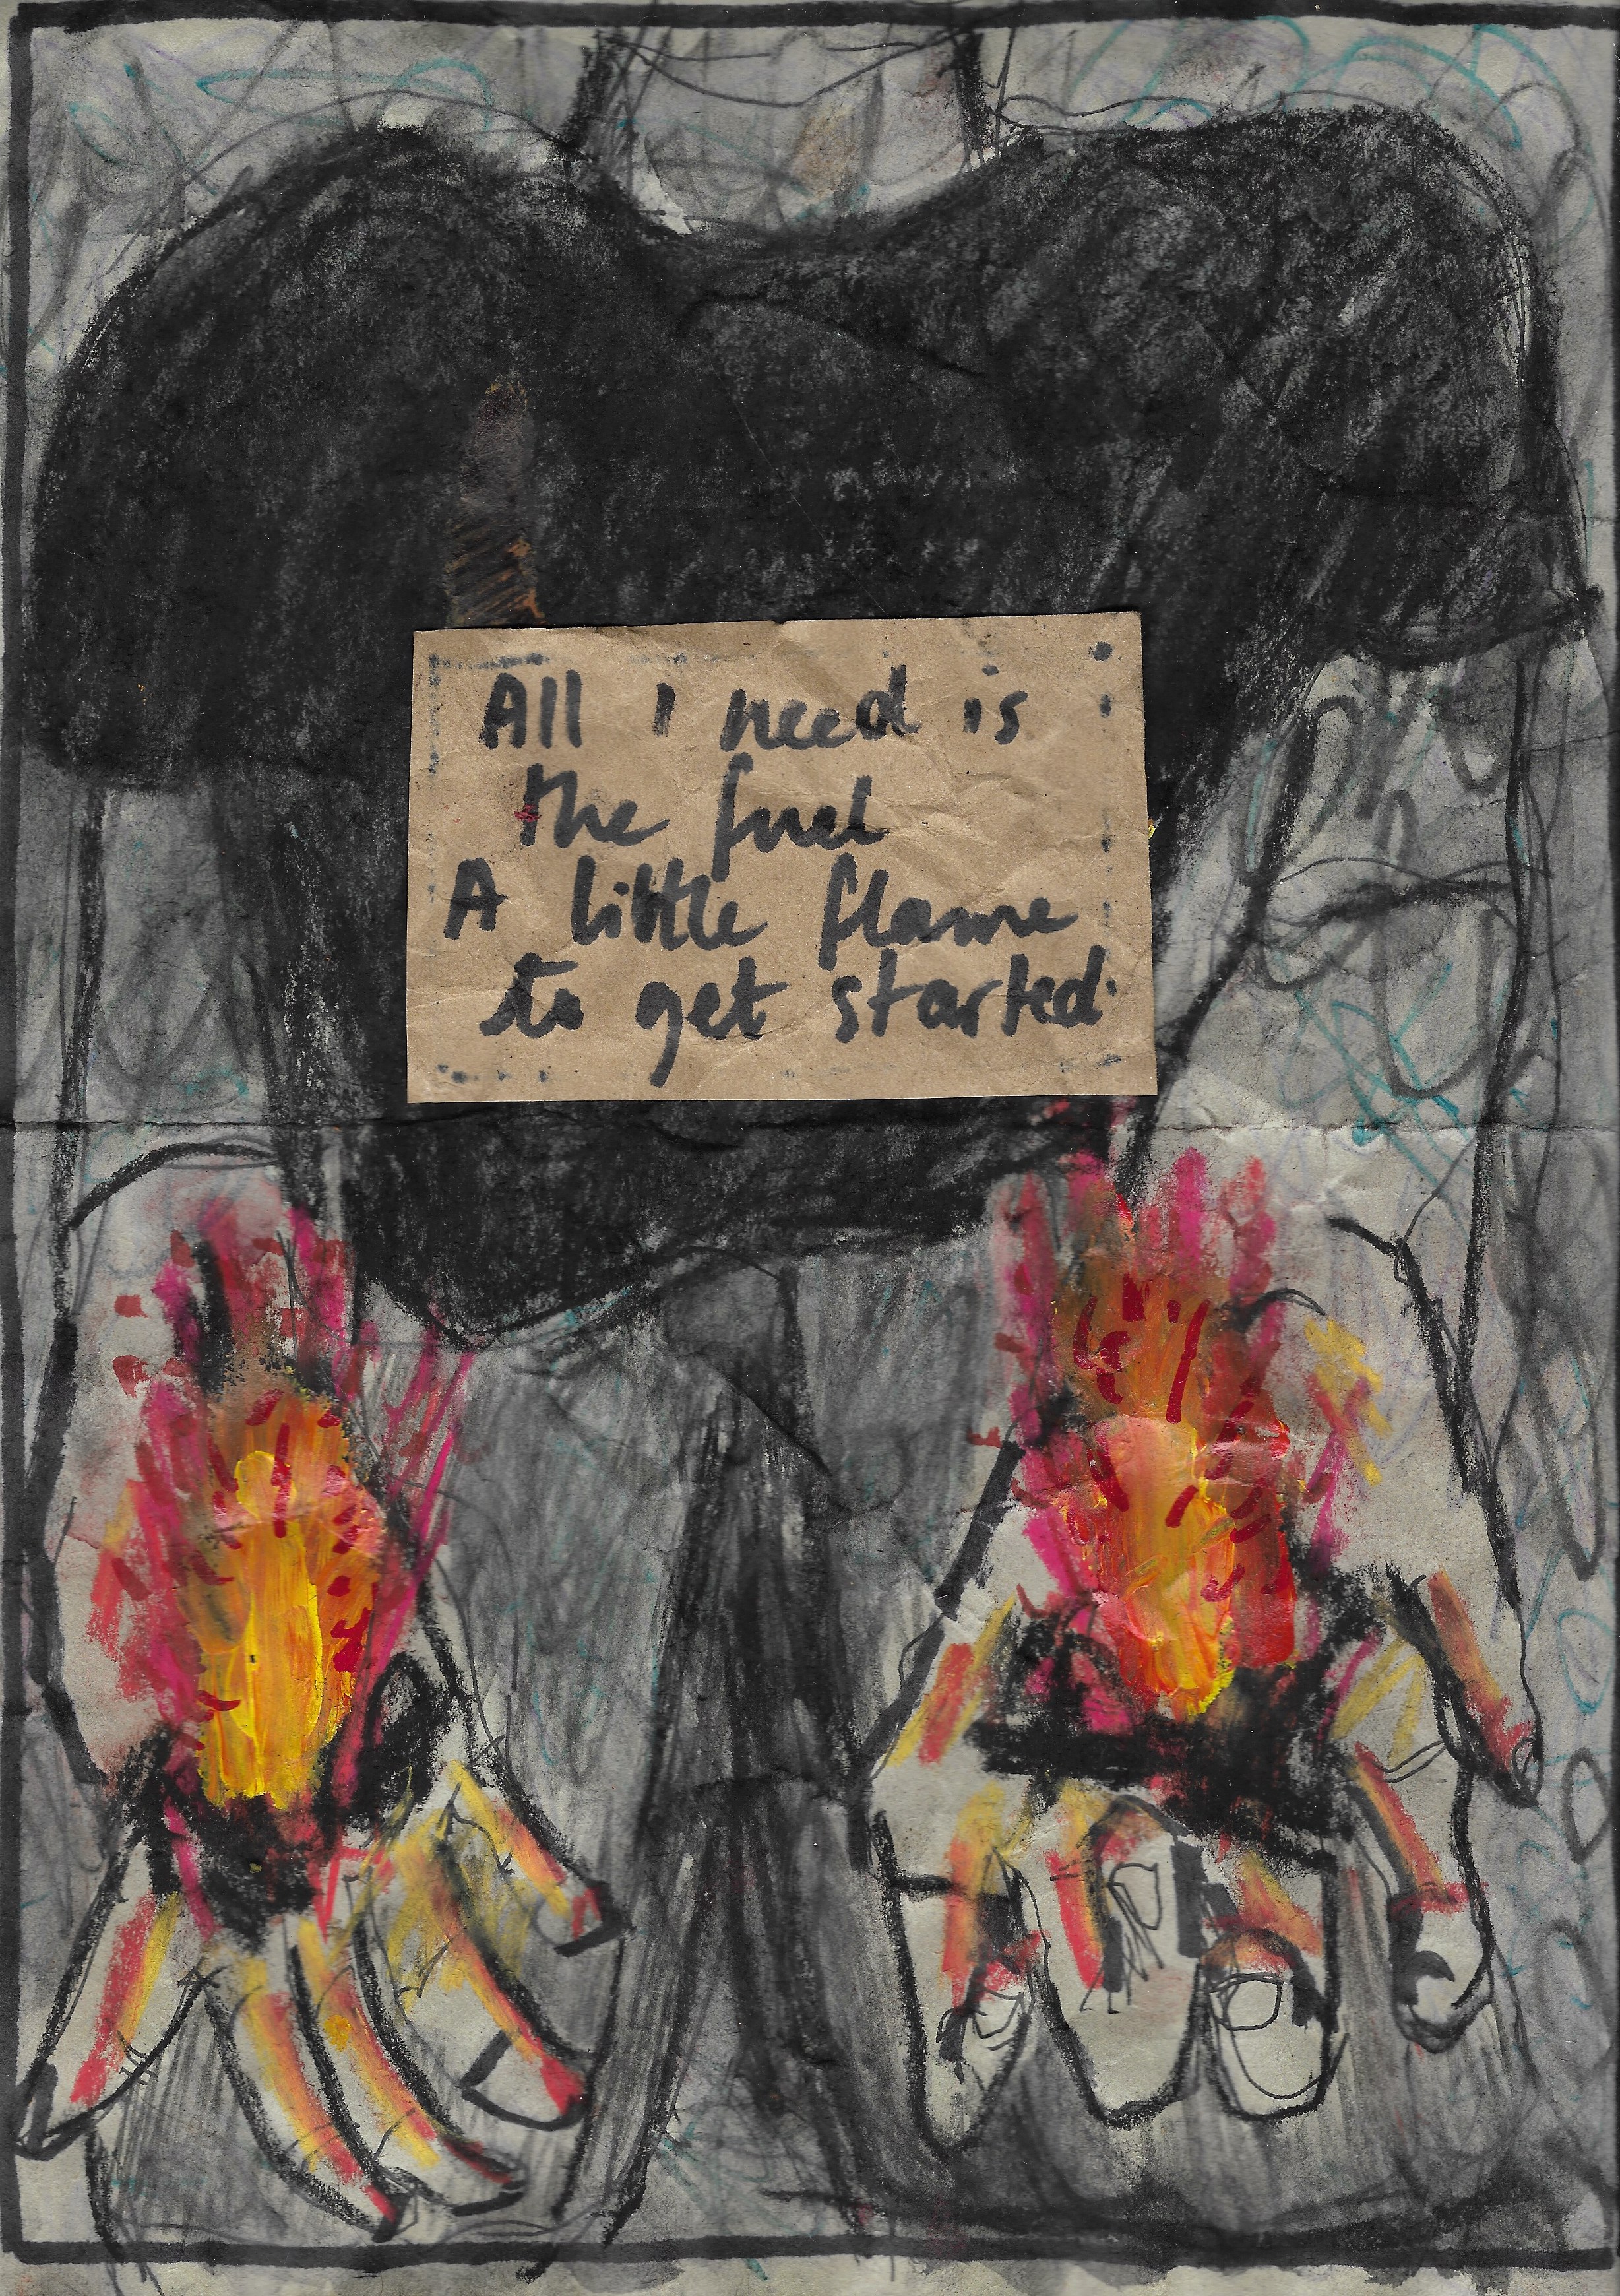 All I need is
the fuel
A little flame
to get started.